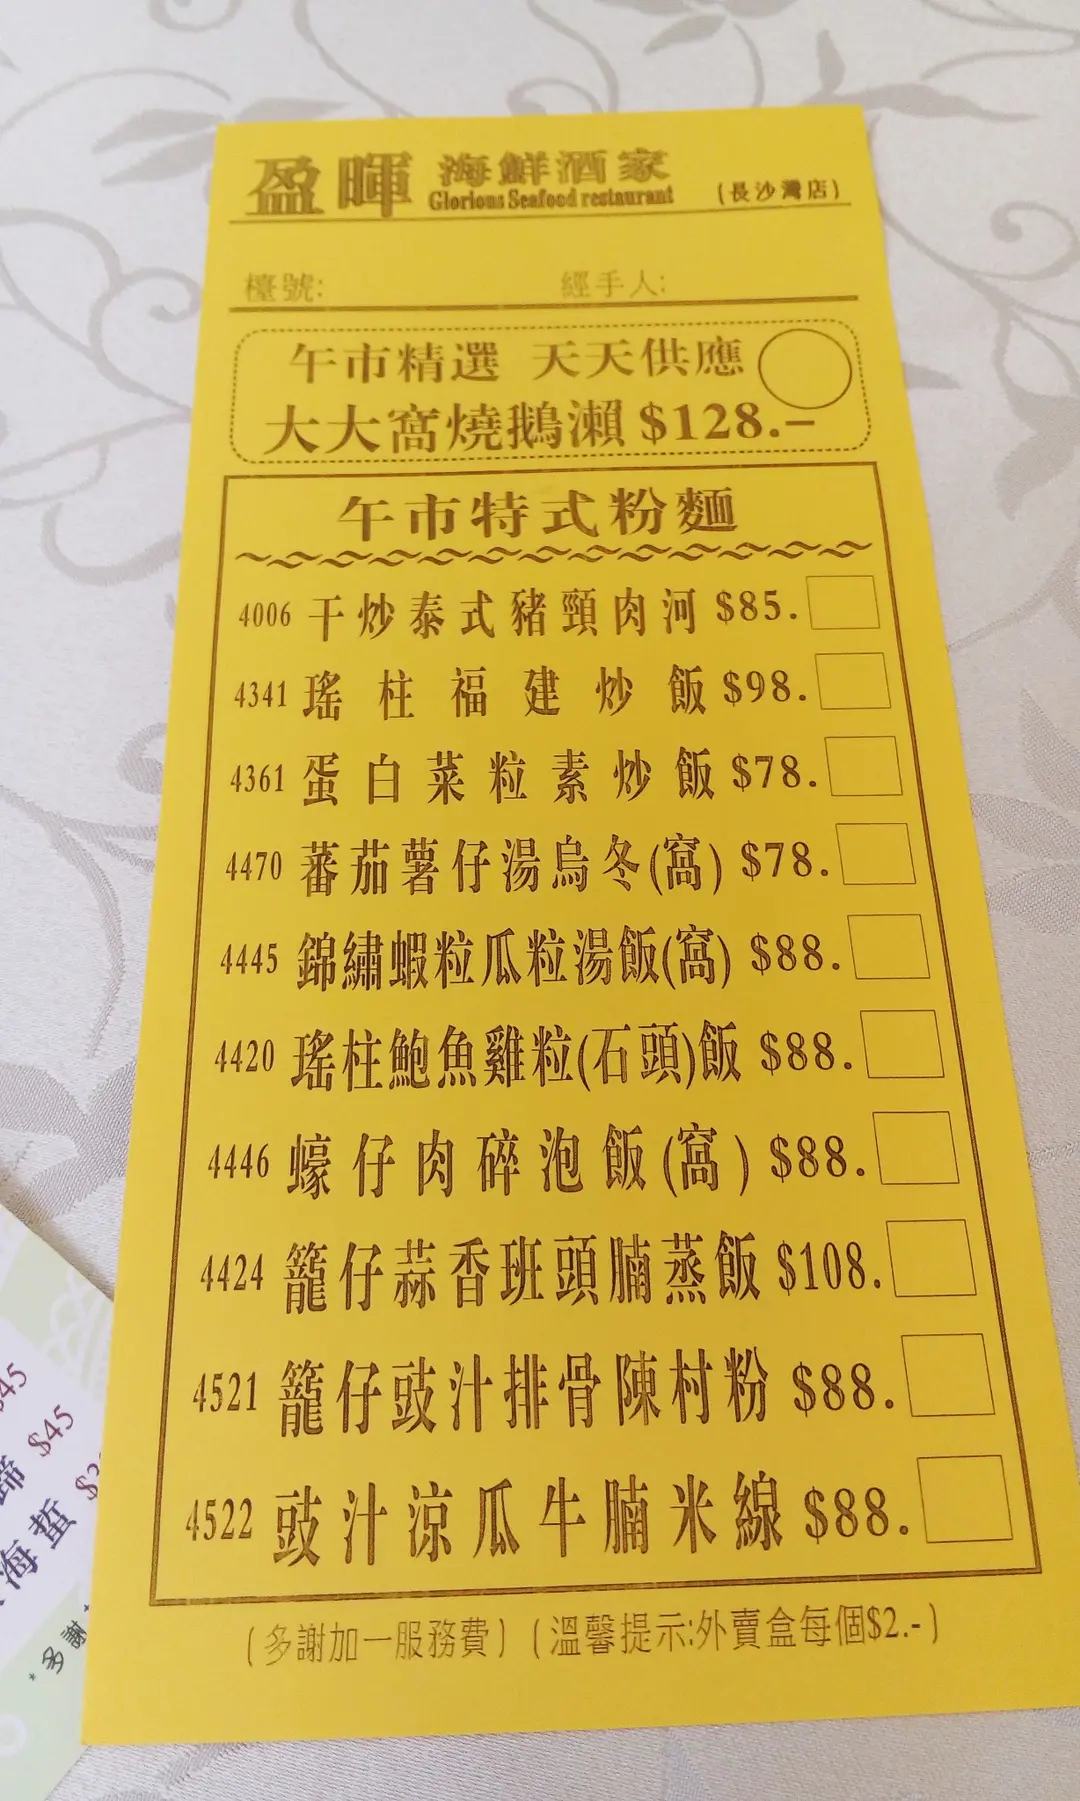 盈暉 海鮮酒家 (長沙灣店)
Glorious Seafood restaurant
檯號: 經手人:
午市精選 天天供應
大大窩燒鵝瀨 $128.-
午市特式粉麵
4006 干炒泰式豬頸肉河 $85.
4341 瑤柱福建炒飯 $98.
4361 蛋白菜粒素炒飯 $78.
4470 蕃茄薯仔湯烏冬(窩) $78.
4445 錦繡蝦粒瓜粒湯飯(窩) $88.
4420 瑤柱鮑魚雞粒(石頭)飯 $88.
4446 蠔仔肉碎泡飯(窩) $88.
4424 籠仔蒜香班頭腩蒸飯 $108.
4521 籠仔豉汁排骨陳村粉 $88.
4522 豉汁涼瓜牛腩米線 $88.
(多謝加一服務費) (溫馨提示:外賣盒每個$2.-)
$45
蹄 $45
海蜇
*多謝